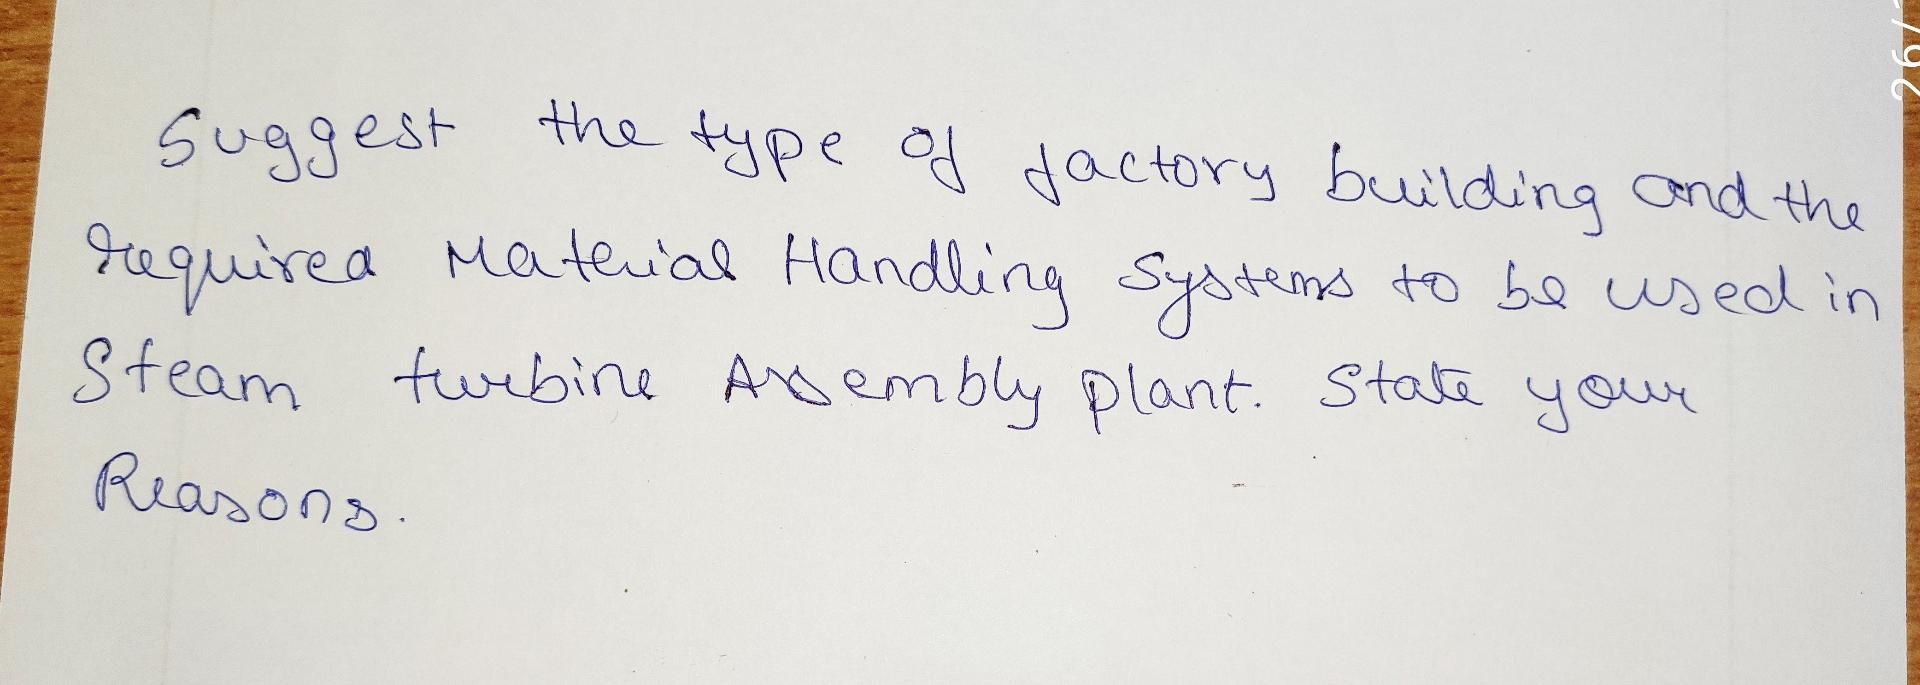 Suggest the type of factory building and the
required Material Handling Systems to be used in
Steam turbine Assembly plant. State your
Reasons.